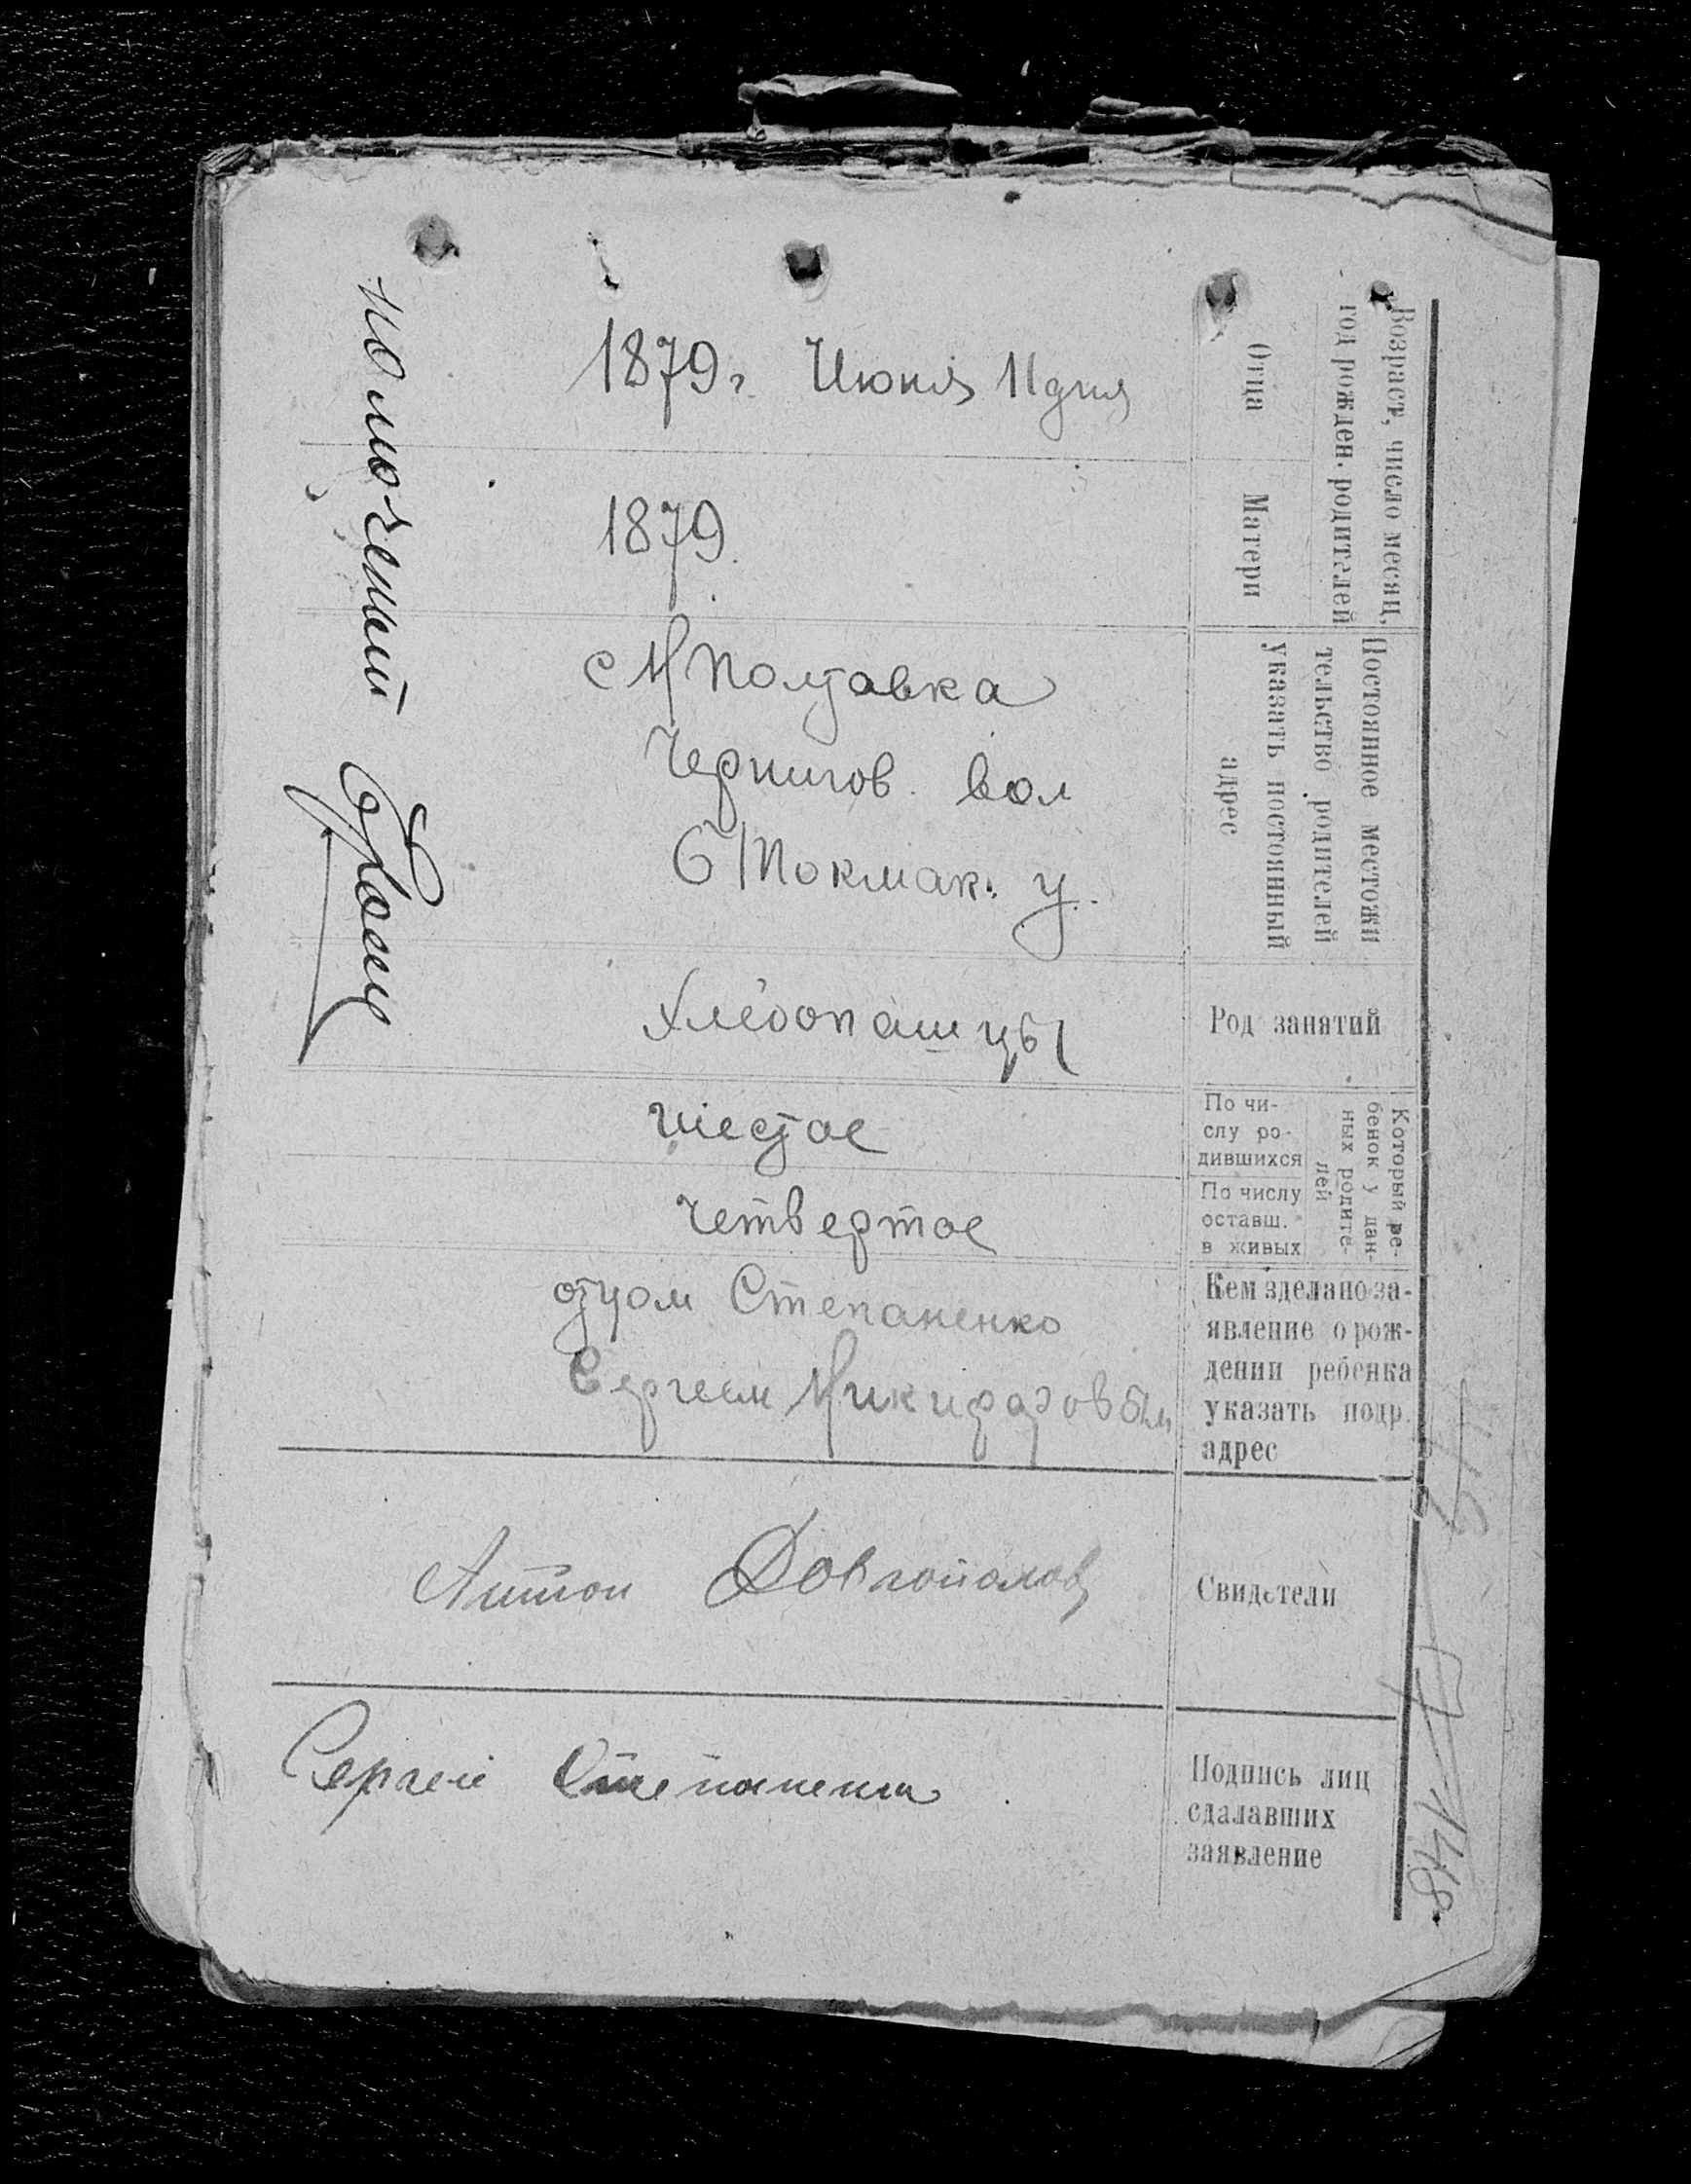 Возраст, число месяц,
год рожден. родителей
Отца
1879 г. Июня 11 дня
Матери
1879
Постоянное местожи
тельство родителей
указать постоянный
адрес
с Н Полтавка
Чернигов. вол
Б Токмак. у.
Род занятий
Хлебопашцы
Который ре-
бенок у дан-
ных родите-
лей
По чи-
слу ро-
дившихся
шестое
По числу
оставш.
в живых
четвертое
Кем зделано за-
явление о рож-
дении ребенка
указать подр.
адрес
отцом Степаненко
Сергеем Никифаровым
Свидетели
Антон Довгополов
Подпись лиц
сдалавших
заявление
Сергей Степаненко
148